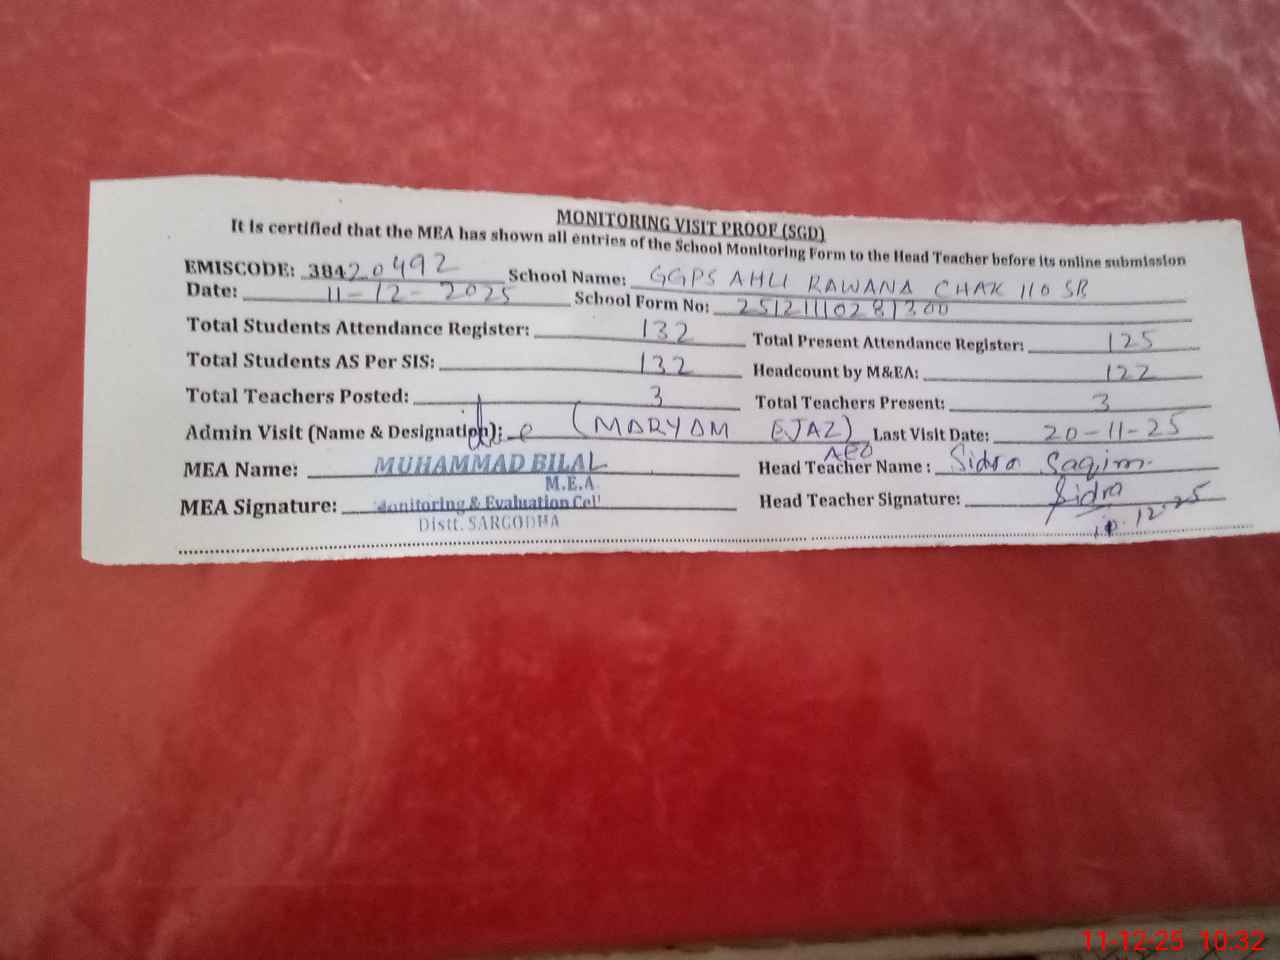 MONITORING VISIT PROOF (SGD)
It is certified that the MEA has shown all entries of the School Monitoring Form to the Head Teacher before its online submission
EMISCODE: 38420492 School Name: GGPS AHLI RAWANA CHAK 110 SB
Date: 11-12-2025 School Form No: 25121110281300
Total Students Attendance Register: 132 Total Present Attendance Register: 125
Total Students AS Per SIS: 132 Headcount by M&EA: 122
Total Teachers Posted: 3 Total Teachers Present: 3
Admin Visit (Name & Designation): (MARYAM EJAZ) AEO Last Visit Date: 20-11-25
MEA Name: MUHAMMAD BILAL Head Teacher Name: Sidra Saqim
M.E.A
MEA Signature: Monitoring & Evaluation Cell Head Teacher Signature: Sidra
Distt. SARGODHA 12.25
11-12-25 10:32